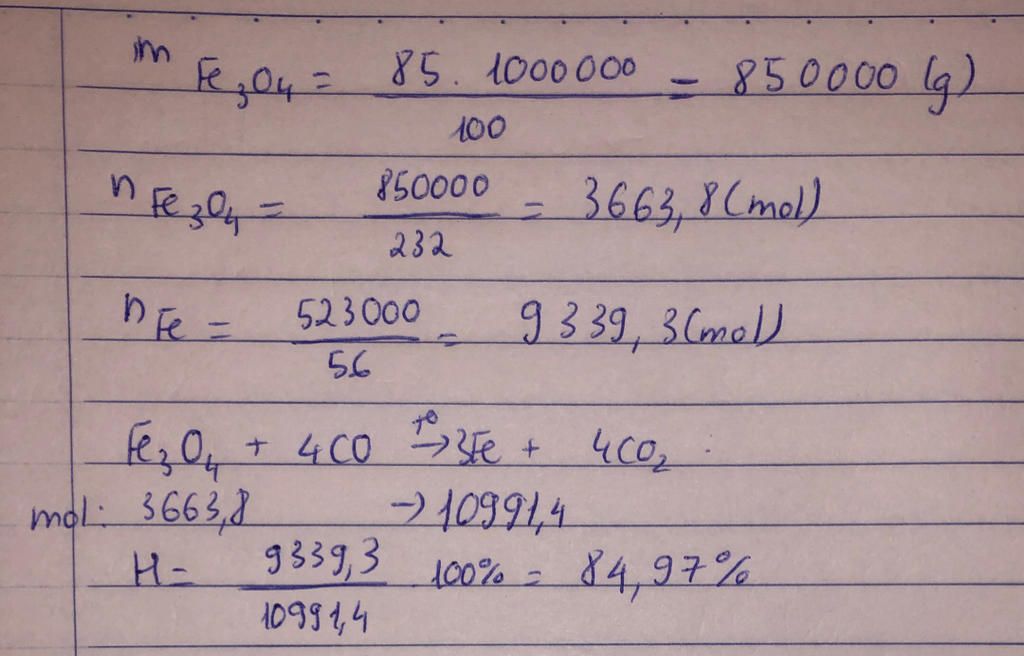 m Fe₃O₄ = 85 . 1000000 / 100 = 850000 (g)
n Fe₃O₄ = 850000 / 232 = 3663,8 (mol)
n Fe = 523000 / 56 = 9339,3 (mol)
Fe₃O₄ + 4CO t° → 3Fe + 4CO₂
mol: 3663,8 → 10991,4
H = 9339,3 / 10991,4 . 100% = 84,97%